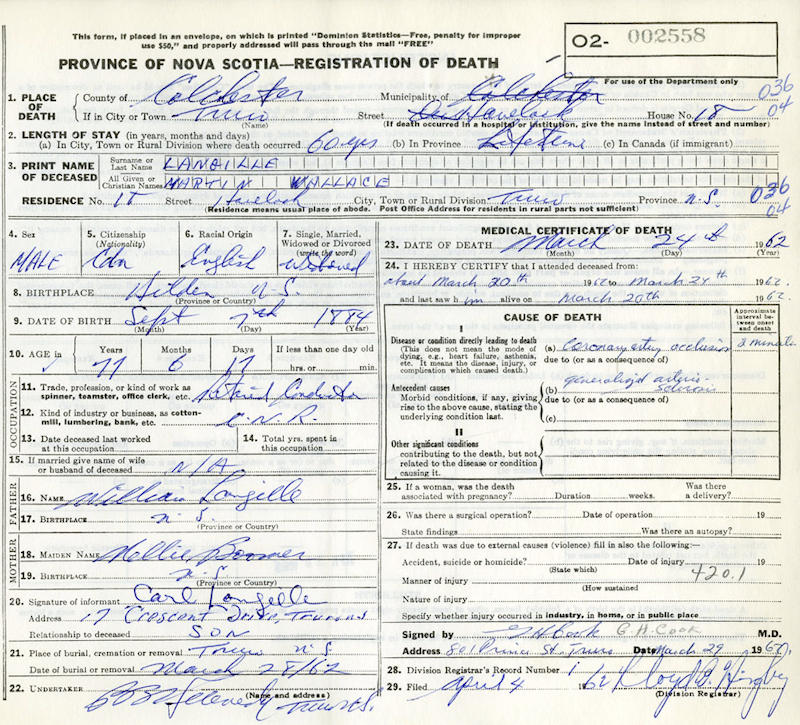 This form, if placed in an envelope, on which is printed "Dominion Statistics—Free, penalty for improper
use $50," and properly addressed will pass through the mail "FREE"
O2- 002558
PROVINCE OF NOVA SCOTIA—REGISTRATION OF DEATH
For use of the Department only
1. PLACE OF DEATH { County of Colchester Municipality of Colchester 036
If in City or Town Truro Street Havelock House No. 18 04
(Name) (If death occurred in a hospital or institution, give the name instead of street and number)
2. LENGTH OF STAY (in years, months and days)
(a) In City, Town or Rural Division where death occurred 60 yrs (b) In Province Lifetime (c) In Canada (if immigrant)
3. PRINT NAME OF DECEASED Surname or Last Name LANGILLE
All Given or Christian Names MARTIN WALLACE
RESIDENCE No. 18 Street Havelock City, Town or Rural Division Truro Province N.S. 036
(Residence means usual place of abode. Post Office Address for residents in rural parts not sufficient) 04
4. Sex 5. Citizenship (Nationality) 6. Racial Origin 7. Single, Married, Widowed or Divorced (write the word)
MALE Cdn English Widowed
8. BIRTHPLACE Hilden N.S.
(Province or Country)
9. DATE OF BIRTH Sept 7th 1884
(Month) (Day) (Year)
10. AGE in Years Months Days If less than one day old
77 6 17 hrs. or min.
OCCUPATION
11. Trade, profession, or kind of work as spinner, teamster, office clerk, etc. Retired Conductor
12. Kind of industry or business, as cotton-mill, lumbering, bank, etc. C.N.R.
13. Date deceased last worked at this occupation 14. Total yrs. spent in this occupation
15. If married give name of wife or husband of deceased N/A
FATHER
16. NAME William Langille
17. BIRTHPLACE N.S.
(Province or Country)
MOTHER
18. MAIDEN NAME Nellie Boomer
19. BIRTHPLACE N.S.
(Province or Country)
20. Signature of informant Carl Langille
Address 17 Crescent Drive, Truro N.S.
Relationship to deceased SON
21. Place of burial, cremation or removal Truro N.S.
Date of burial or removal March 28/62
22. UNDERTAKER
(Name and address) Truro N.S.
MEDICAL CERTIFICATE OF DEATH
23. DATE OF DEATH March 24th 1962
(Month) (Day) (Year)
24. I HEREBY CERTIFY that I attended deceased from:
about March 20th 1962 to March 24th 1962
and last saw him alive on March 20th 1962
CAUSE OF DEATH
Approximate interval between onset and death
I
Disease or condition directly leading to death (a) Coronary artery occlusion 2 minutes
(This does not mean the mode of dying, e.g., heart failure, asthenia, etc. It means the disease, injury, or complication which caused death.)
due to (or as a consequence of)
Antecedent causes (b) generalized arteriosclerosis
Morbid conditions, if any, giving rise to the above cause, stating the underlying condition last.
due to (or as a consequence of)
(c)
II
Other significant conditions
contributing to the death, but not related to the disease or condition causing it.
25. If a woman, was the death associated with pregnancy? Duration weeks. Was there a delivery?
26. Was there a surgical operation? Date of operation 19
State findings Was there an autopsy?
27. If death was due to external causes (violence) fill in also the following:—
Accident, suicide or homicide? Date of injury 19
(State which)
Manner of injury 420.1
(How sustained
Nature of injury
Specify whether injury occurred in industry, in home, or in public place
Signed by G H Cook G. H. COOK M.D.
Address 801 Prince St. Truro Date March 29 1962
28. Division Registrar's Record Number
29. Filed April 4 1962
(Division Registrar)